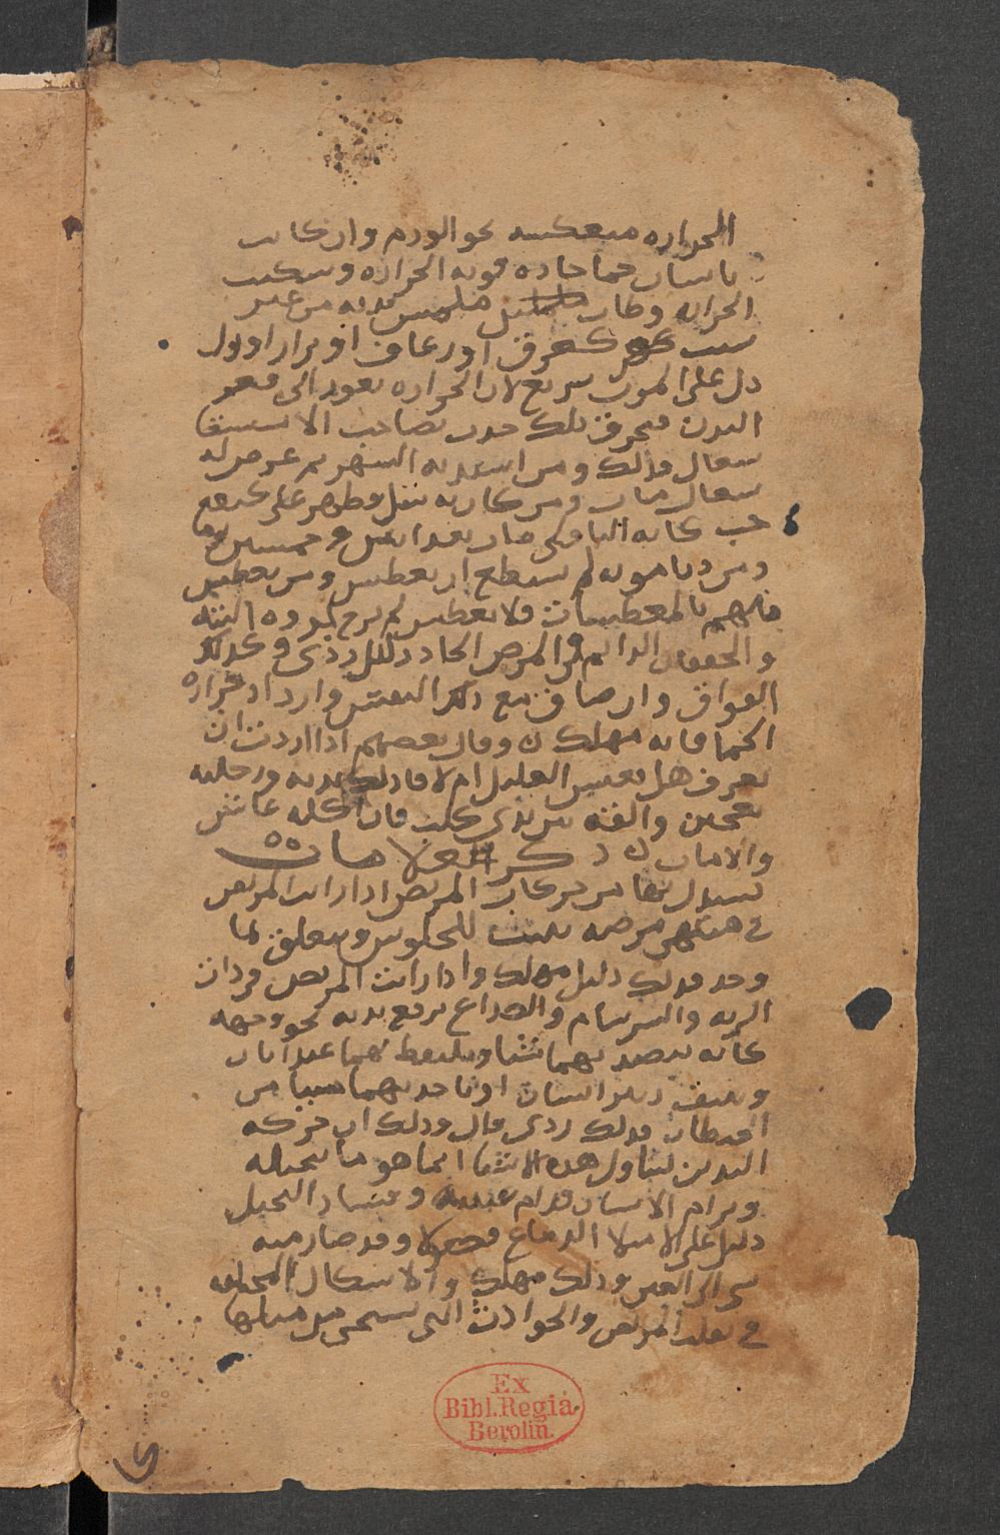 الحراره منعكسه نحو الورم وان كانت
بانسان حما حاده قويه الحراره وسكنت
الحراره وطاب ملمس بدنه من غير
سبب كعرق او رعاف او براز او بول
دل على الموت سريع لان الحراره تعود الى قعر
البدن فتحرق تلك حدث بصاحب الاستسقا
سعال فذلك ومن اشتد به السهر ثم عرض له
سعال مات ومن كان به وظهر على كتفه
حب كانه الباقلى مات بعد اثنين وخمسين يوما
ومن دنا موته لم يستطع ان يعطس ومن يعطس
بالمعطسات فلا يعطس لم يرج له البته
والخفقان الدائم في المرض الحاد دليل ردي وكذلك
الفواق وان ضاق مع ذلك النفس وازداد حراره
الحما فانه مهلك ن وقال بعضهم اذا اردت ان
تعرف هل يعيش العليل ام لا فادلك بدنه ورجليه
بعجين والقه بين يدي كلب فان اكله عاش
والا مات ن ذكر العلامات
تستدل بها من حركات المريض اذا رايت المريض
في منتهى مرضه يثب للجلوس ويتعلق بما
وجد فذلك دليل مهلك واذا رايت المريض في ذات
الريه والسرسام والصداع يرفع يديه نحو وجهه
كانه يصيد بهما شيا ويلتقط بهما عيدانا
وينتف زيبر الثياب او ياخذ بهما شيا من
الحيطان فذلك ردي قال وذلك ان حركه
اليدين لتناول هذه الاشيا انما هو ما يتخيله
ويراه الانسان قدام عينيه وفساد التخيل
دليل على امتلا الدماغ فضولا وقد صار منه
شي الى العين وذلك مهلك والاشكال المختلفه
في تقلب المريض والحوادث التي
Ex
Bibl. Regia
Berolin.